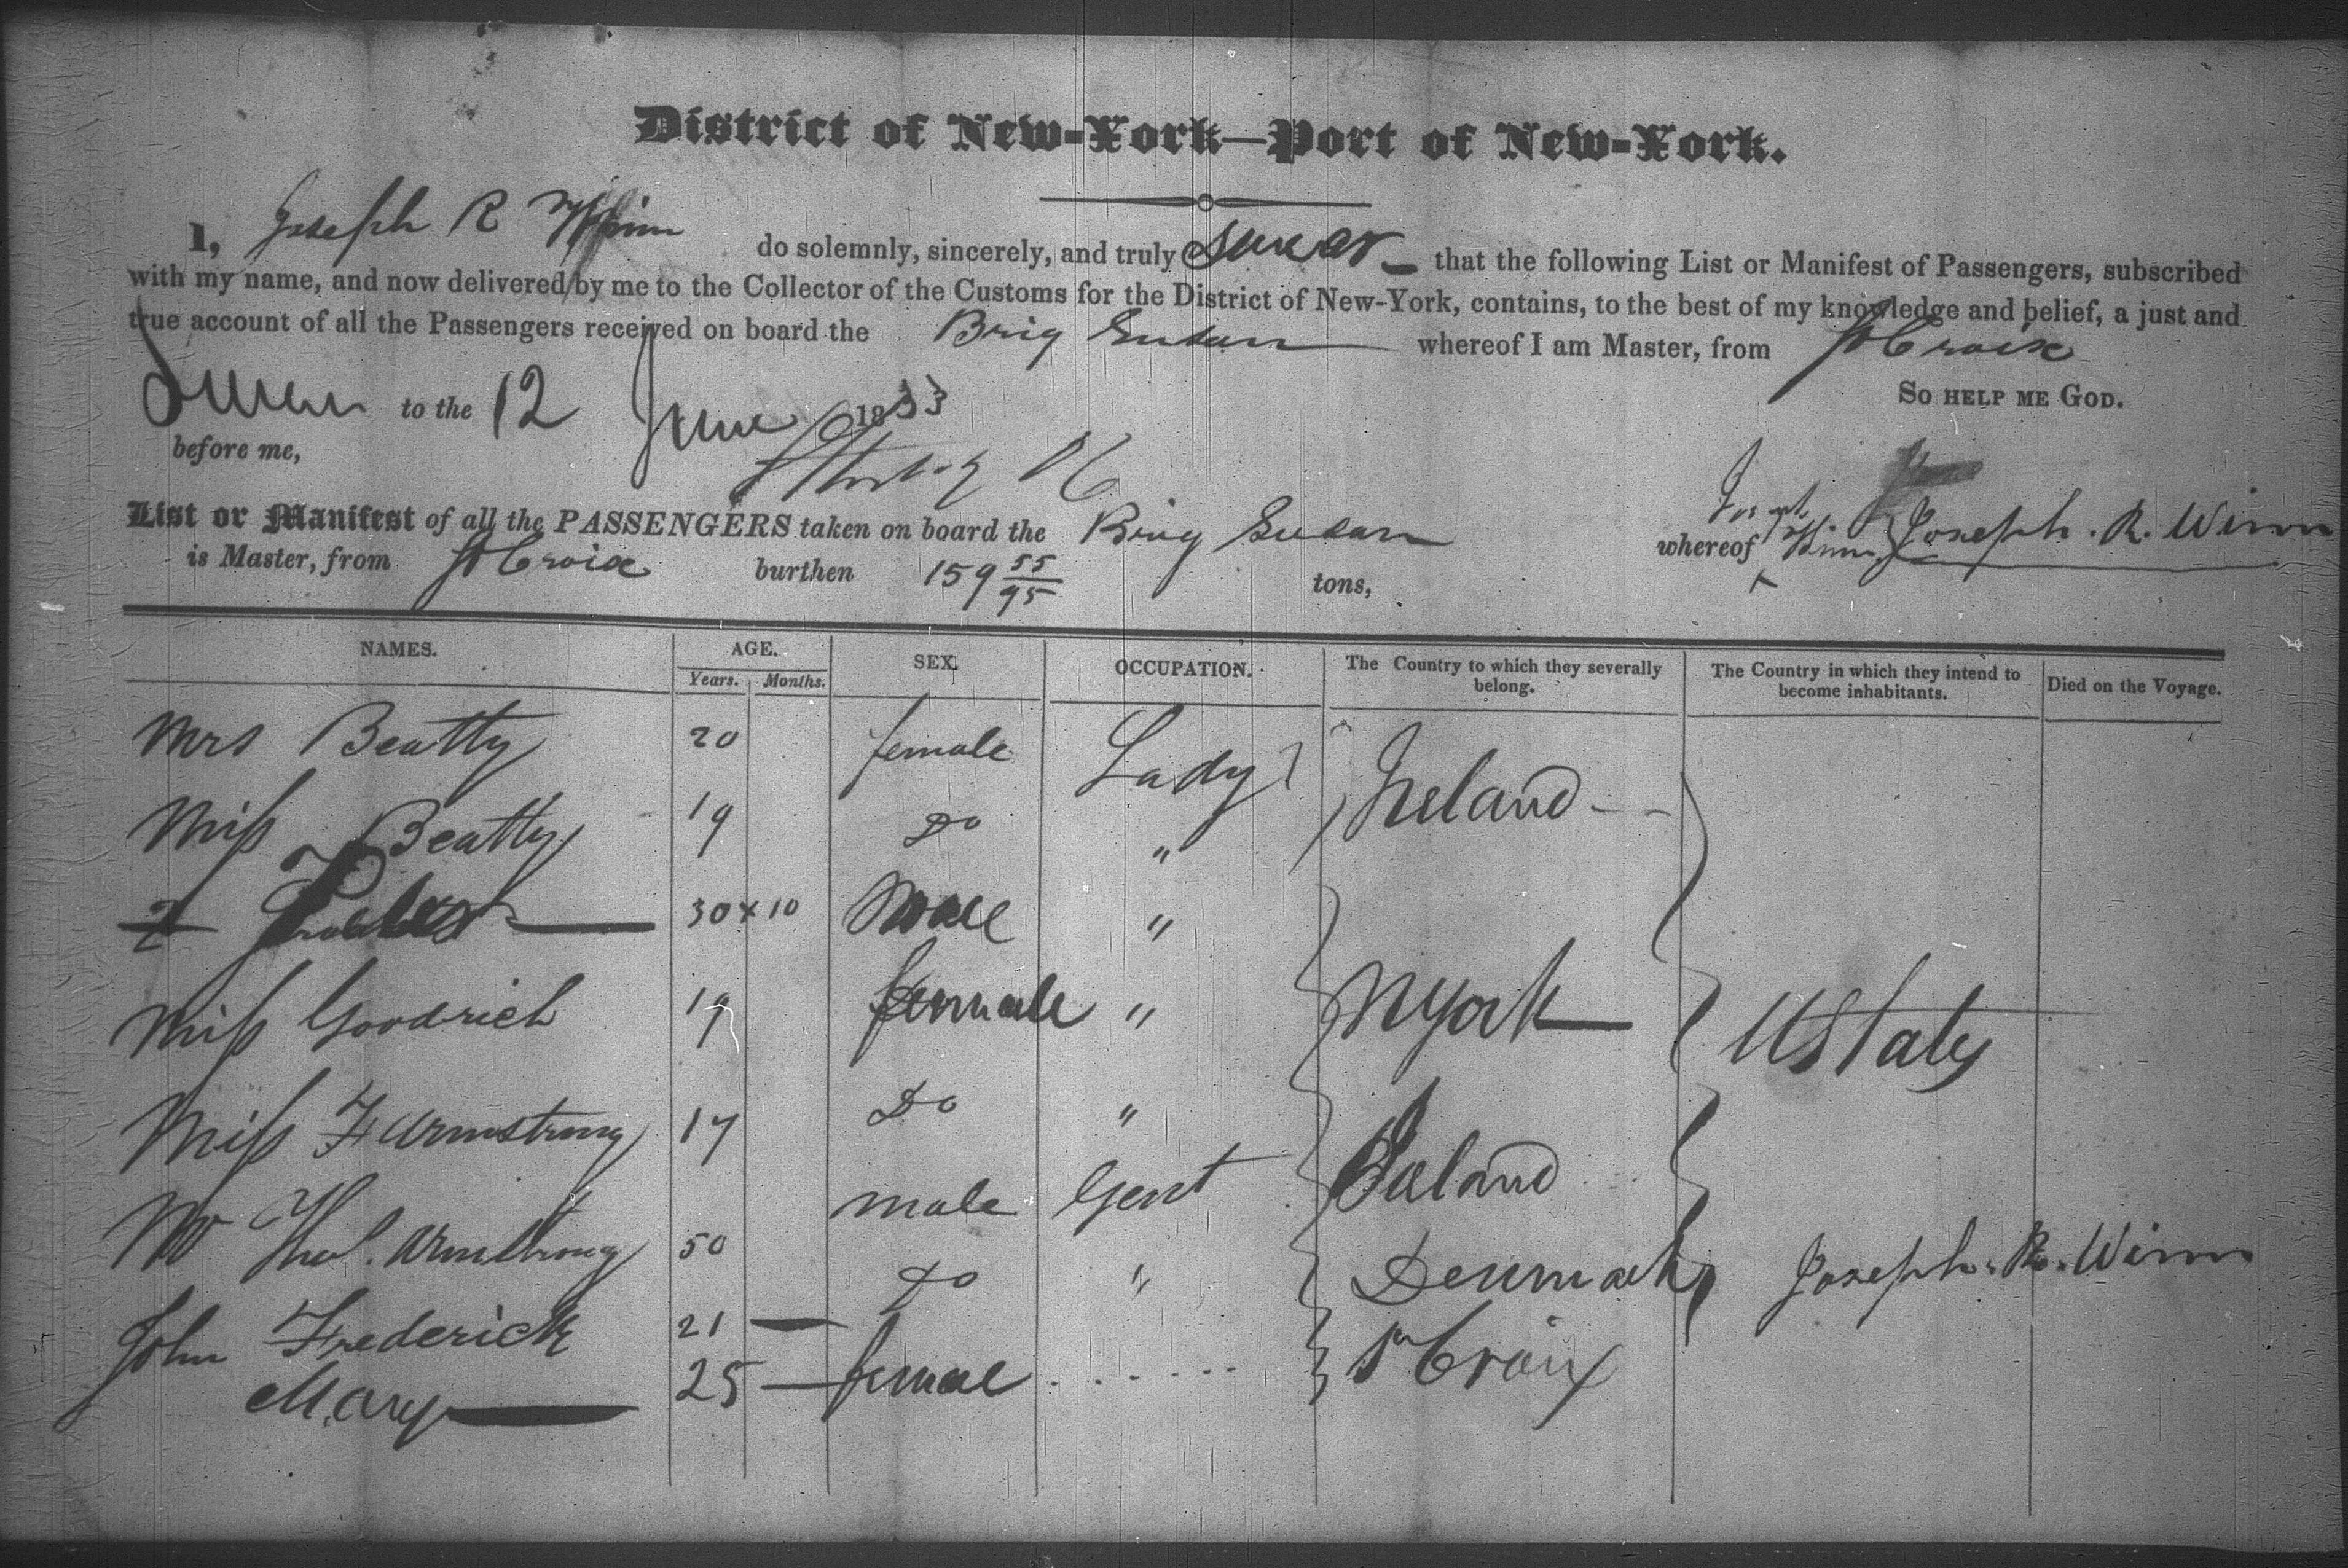 District of New-York—Port of New-York.
I, Joseph R Winn do solemnly, sincerely, and truly swear that the following List or Manifest of Passengers, subscribed
with my name, and now delivered by me to the Collector of the Customs for the District of New-York, contains, to the best of my knowledge and belief, a just and
true account of all the Passengers received on board the Brig Susan whereof I am Master, from St Croix
So help me God.
Sworn to the 12 June 1833
before me,
List or Manifest of all the PASSENGERS taken on board the Brig Susan whereof Joseph Winn Joseph. R. Winn
is Master, from St Croix burthen 159 55/95 tons,
NAMES. AGE. SEX. OCCUPATION. The Country to which they severally belong. The Country in which they intend to become inhabitants. Died on the Voyage.
Years. Months.
Mrs Beatty 20 female Lady Ireland
Miss Beatty 19 Do "
30 x 10 Male "
Miss Goodrich 19 female " NYork UStates
Miss F Armstrong 17 Do "
Mr Thos. Armstrong 50 male Gent Ireland
John Frederick 21 — Do " Denmark Joseph. R. Winn
Mary 25 — female St Croix